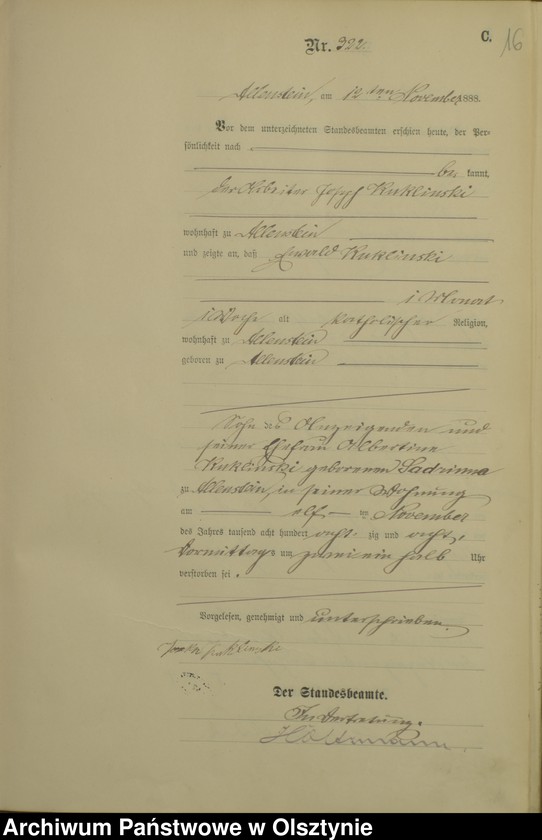 C. 16
Nr. 322.
Allenstein, am 12ten November 1888.
Vor dem unterzeichneten Standesbeamten erschien heute, der Per-
sönlichkeit nach
be kannt,
der Arbeiter Joseph Kuklinski
wohnhaft zu Allenstein
und zeigte an, daß Ewald Kuklinski
1 Monat
1 Woche alt katholischer Religion,
wohnhaft zu Allenstein
geboren zu Allenstein
Sohn des Anzeigenden und
seiner Ehefrau Albertine
Kuklinski geborenen
zu Allenstein, in seiner Wohnung
am elf ten November
des Jahres tausend acht hundert acht zig und acht,
Vormittags um zwei ein halb Uhr
verstorben sei.
Vorgelesen, genehmigt und unterschrieben.
Kuklinski
Der Standesbeamte.
In Vertretung.
Archiwum Państwowe w Olsztynie